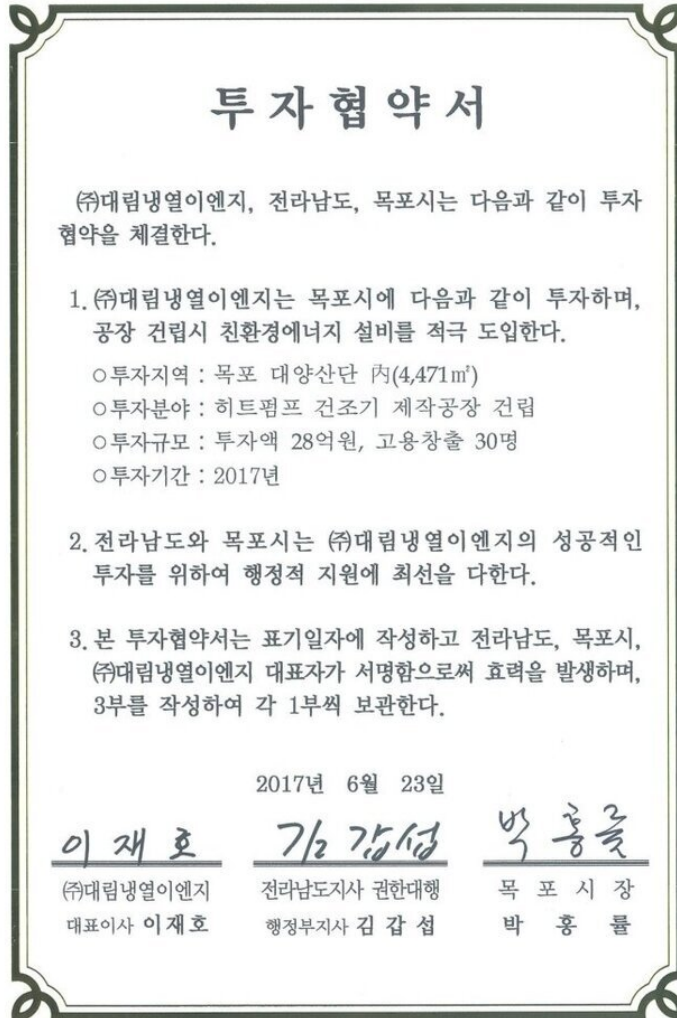 투자협약서
㈜대림냉열이엔지, 전라남도, 목포시는 다음과 같이 투자
협약을 체결한다.
1. ㈜대림냉열이엔지는 목포시에 다음과 같이 투자하며,
공장 건립시 친환경에너지 설비를 적극 도입한다.
○투자지역 : 목포 대양산단 內(4,471㎡)
○투자분야 : 히트펌프 건조기 제작공장 건립
○투자규모 : 투자액 28억원, 고용창출 30명
○투자기간 : 2017년
2. 전라남도와 목포시는 ㈜대림냉열이엔지의 성공적인
투자를 위하여 행정적 지원에 최선을 다한다.
3. 본 투자협약서는 표기일자에 작성하고 전라남도, 목포시,
㈜대림냉열이엔지 대표자가 서명함으로써 효력을 발생하며,
3부를 작성하여 각 1부씩 보관한다.
2017년 6월 23일
이재호 김갑섭 박홍률
㈜대림냉열이엔지 전라남도지사 권한대행 목포시장
대표이사 이재호 행정부지사 김갑섭 박홍률